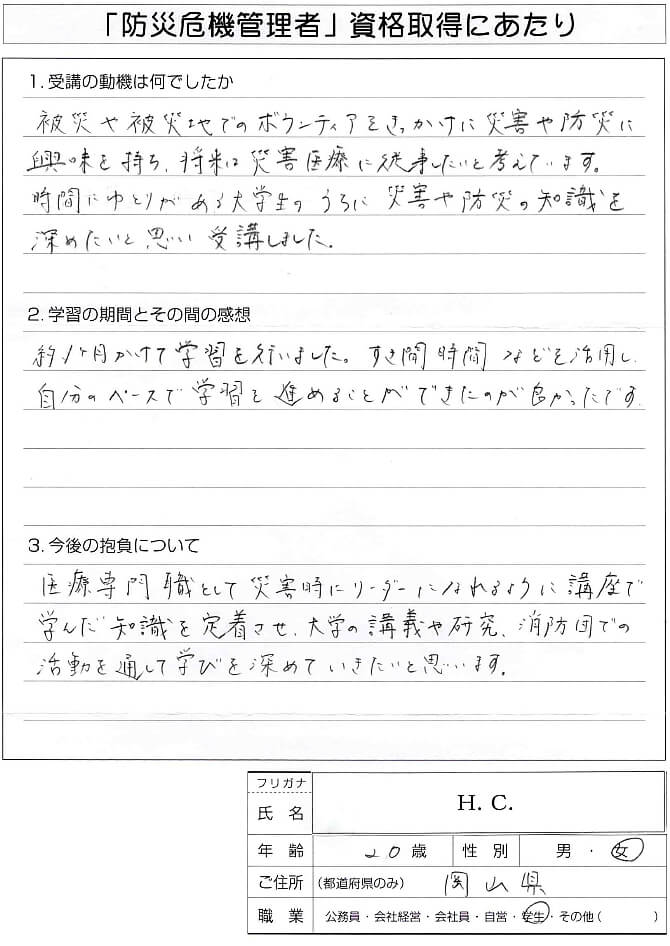 「防災危機管理者」資格取得にあたり
1. 受講の動機は何でしたか
被災や被災地でのボランティアをきっかけに災害や防災に
興味を持ち、将来は災害医療に従事したいと考えています。
時間にゆとりがある大学生のうちに災害や防災の知識を
深めたいと思い受講しました。
2. 学習の期間とその間の感想
約1ヶ月かけて学習を行いました。すき間時間などを活用し、
自分のペースで学習を進めることができたのが良かったです。
3. 今後の抱負について
医療専門職として災害時にリーダーになれるように講座で
学んだ知識を定着させ、大学の講義や研究、消防団での
活動を通して学びを深めていきたいと思います。
フリガナ
氏名 H. C.
年齢 20歳 性別 男・女
ご住所 (都道府県のみ) 岡山県
職業 公務員・会社経営・会社員・自営・学生・その他( )